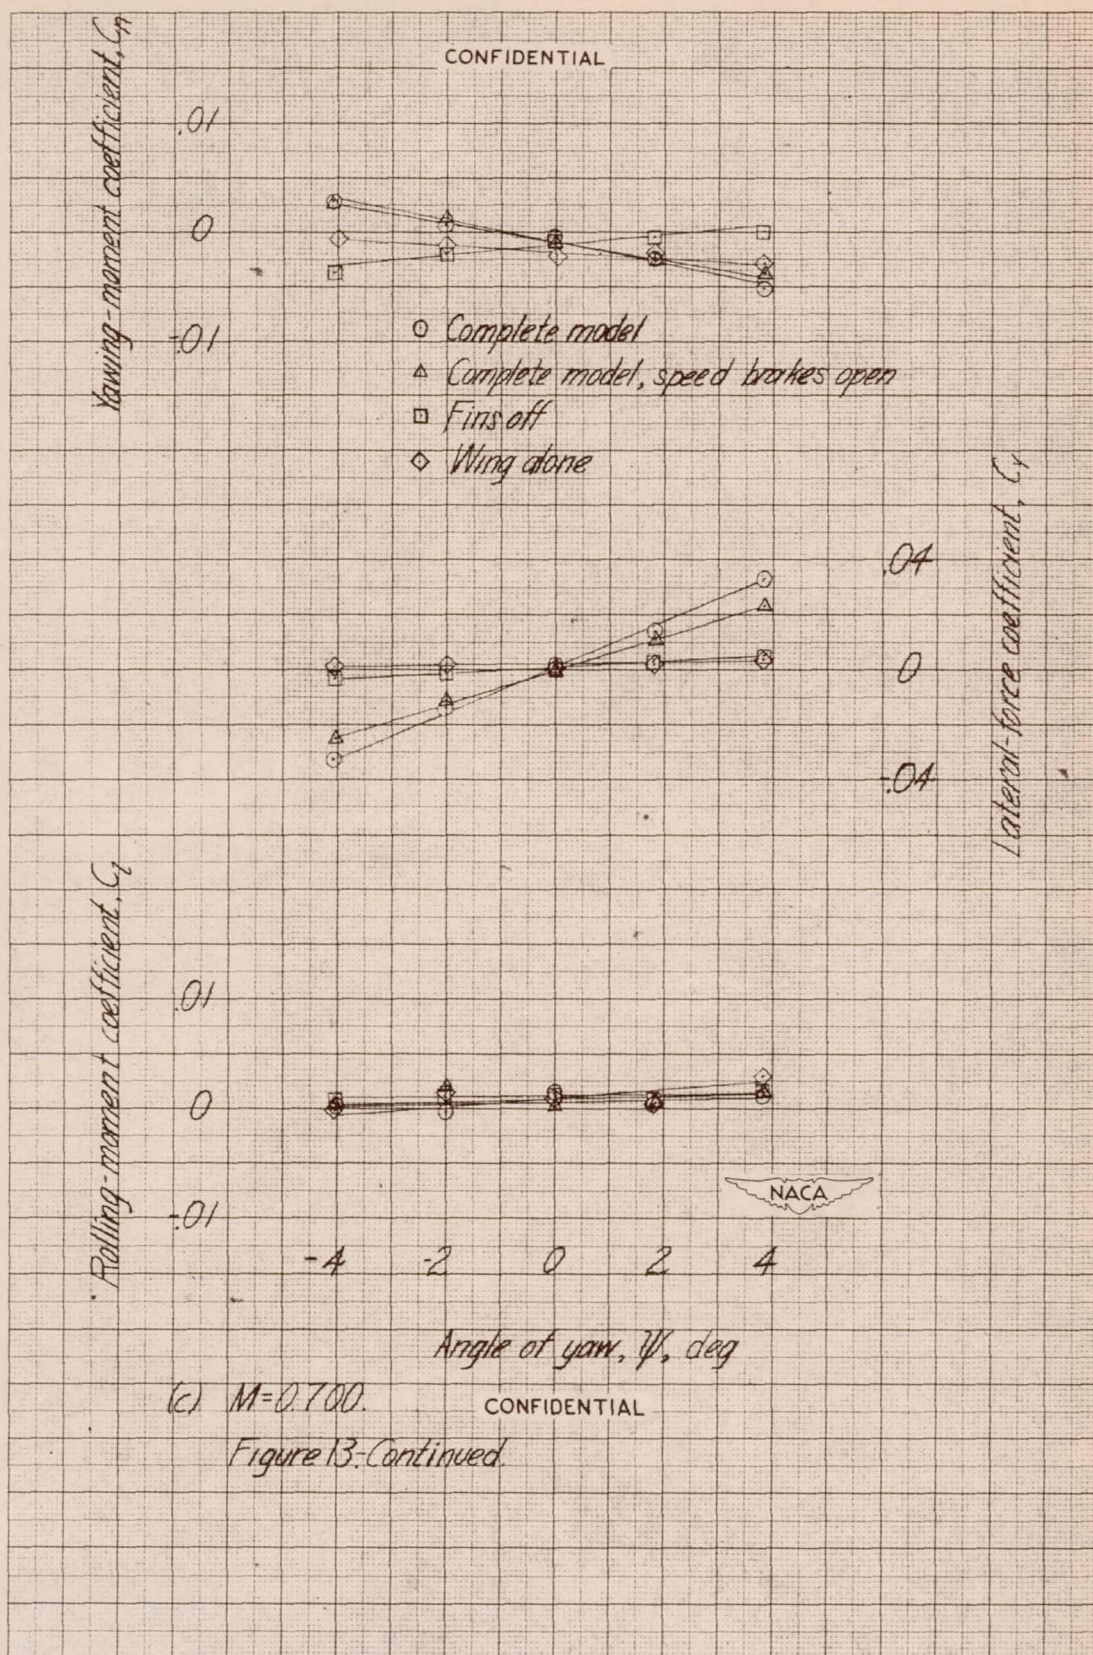 CONFIDENTIAL
Yawing-moment coefficient, Cn
.01
0
-.01
Complete model
Complete model, speed brakes open
Fins off
Wing alone
Lateral-force coefficient, CY
.04
0
-.04
Rolling-moment coefficient, Cl
.01
0
-.01
NACA
-4 -2 0 2 4
Angle of yaw, ψ, deg
(c) M=0.700.
CONFIDENTIAL
Figure 13.-Continued.